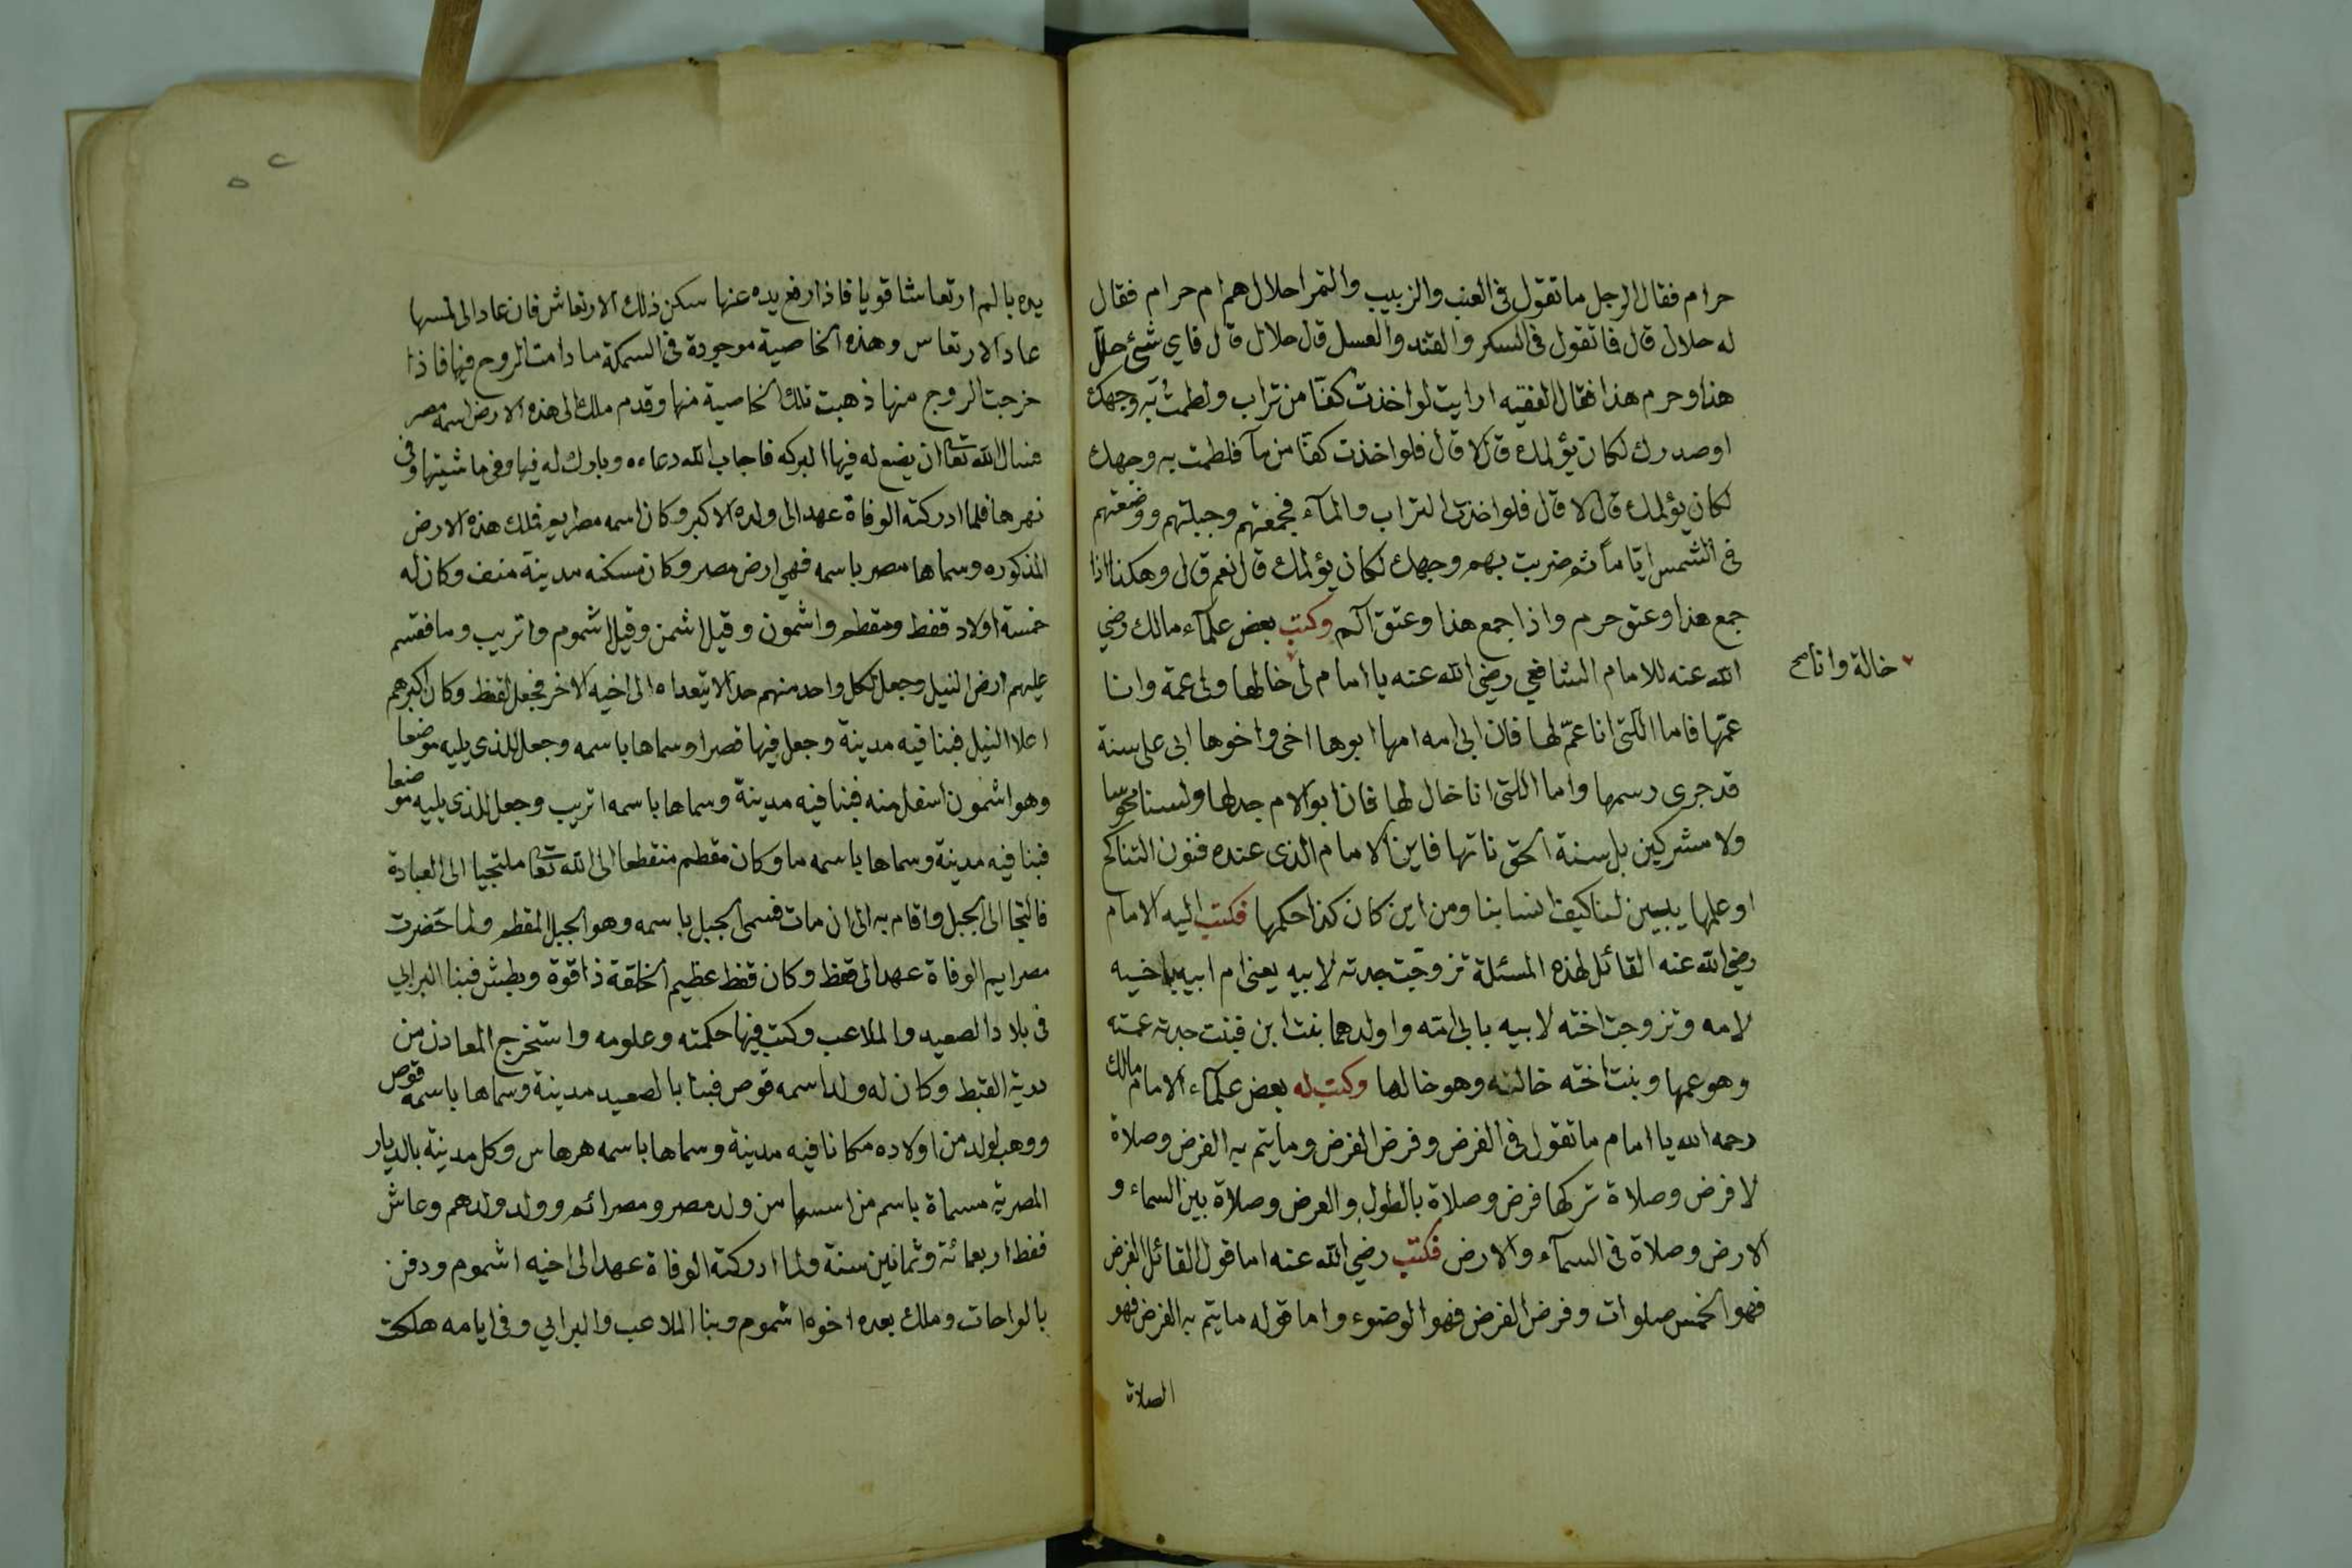 حرام فقال الرجل ما تقول فى العنب والزبيب والتمر احلال هم ام حرام فقال
له حلال قال فما تقول فى السكر والقند والعسل قال حلال قال فاي شئ حلل
هذا وحرم هذا فقال الفقيه ارايت لو اخذت كفا من تراب ولطمت به وجهك
او صدرك لكان يؤلمك قال لا قال فلو اخذت كفا من مآ فلطمت به وجهك
لكان يؤلمك قال لا قال فلو اخذت التراب والمآء فجمعتهم وجبلتهم ووضعتهم
فى الشمس اياما ثم ضربت بهم وجهك لكان يؤلمك قال نعم قال وهكذا اذا
جمع هذا وعتق حرم واذا جمع هذا وعتق آلم وكتب بعض علمآء مالك رضي
الله عنه للامام الشافعي رضي الله عنه يا امام لى خالها ولى عمة وانا
خالة وانا صح
عمها فاما اللتى انا عمّ لها فان ابى امه امها ابوها اخى واخوها ابى على سنة
قد جرى رسمها واما اللتى انا خال لها فان ابو الام جدلها ولسنا مجوسا
ولا مشركين بل سنة الحق ناتها فاين الامام الذى عنده فنون التناكح
او علمها يبين لنا كيف انسابنا ومن اين كان كذا حكمها فكتب اليه الامام
رضي الله عنه القائل لهذه المسئلة تزوجت جدته لابيه يعنى ام ابيه باخيه
لامه وتزوجت اخته لابيه بابى امه واولدهما بنت ابن فبنت جدته عمته
وهو عمها وبنت اخته خالته وهو خالها وكتب له بعض علمآء الامام مالك
رحمه الله يا امام ما تقول فى الفرض وفرض الفرض وما يتم به الفرض وصلاة
لا فرض وصلاة تركها فرض وصلاة بالطول والعرض وصلاة بين السماء و
الارض وصلاة فى السمآء والارض فكتب رضي الله عنه اما قول القائل الفرض
فهو الخمس صلوات وفرض الفرض فهو الوضوء واما قوله ما يتم به الفرض فهو
الصلاة
يده بالم ارتعاشا قويا فاذا رفع يده عنها سكن ذلك الارتعاش فان عاد الى لمسها
عاد الارتعاس وهذه الخاصية موجودة فى السمكة ما دامت الروح فيها فاذا
خرجت الروح منها ذهبت تلك الخاصية منها وقدم ملك الى هذه الارض اسمه مصر
فسال الله تعا ان يضع له فيها البركه فاجاب الله دعاءه وبارك له فيها وفى ماشيتها وفى
نهرها فلما ادركته الوفاة عهد الى ولده الاكبر وكان اسمه مصرايم فملك هذه الارض
المذكوره وسماها مصر باسمه فهي ارض مصر وكان مسكنه مدينة منف وكان له
خمسة اولاد قفط ومقطم واشمون وقيل اشمن وقيل اشموم واتريب وما فقسم
عليهم ارض النيل وجعل لكل واحد منهم حدا لا يتعداه الى اخيه الاخر فجعل لقفط وكان اكبرهم
اعلا النيل فبنا فيه مدينة وجعل فيها قصرا وسماها باسمه وجعل للذى يليه موضعا
وهو اشمون اسفل منه فبنا فيه مدينة وسماها باسمه اتريب وجعل للذى يليه موضعا
فبنا فيه مدينة وسماها باسمه ما وكان مقطم منقطعا الى الله تعا ملتجيا الى العبادة
فالتجا الى الجبل واقام به الى ان مات فسمى الجبل باسمه وهو الجبل المقطم ولما حضرت
مصرايم الوفاة عهد الى قفط وكان قفط عظيم الخلقة ذا قوة وبطش فبنا البرابي
فى بلاد الصعيد والملاعب وكتب فيها حكمته وعلومه واستخرج المعادن من
القبط وكان له ولد اسمه قوص فبنا بالصعيد مدينة وسماها باسمه قوص
ووهب لولد من اولاده مكانا فيه مدينة وسماها باسمه هرهاس وكل مدينة بالديار
المصرية مسماة باسم من اسسها من ولد مصر ومصرائم وولد ولدهم وعاش
قفط اربعمائة وثمانين سنة ولما ادركته الوفاة عهد الى اخيه اشموم ودفن
بالواحات وملك بعده اخوه اشموم وبنا الملاعب والبرابي وفى ايامه هلكت